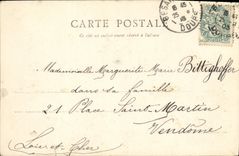 CARTE POSTALE
Ce côté est exclusivement réservé à l'adresse
BESA
DOUBS
Mademoiselle Marguerite Marie Bittighoffer
dans sa famille
21 Place Saint-Martin
Vendôme
Loir-et-Cher